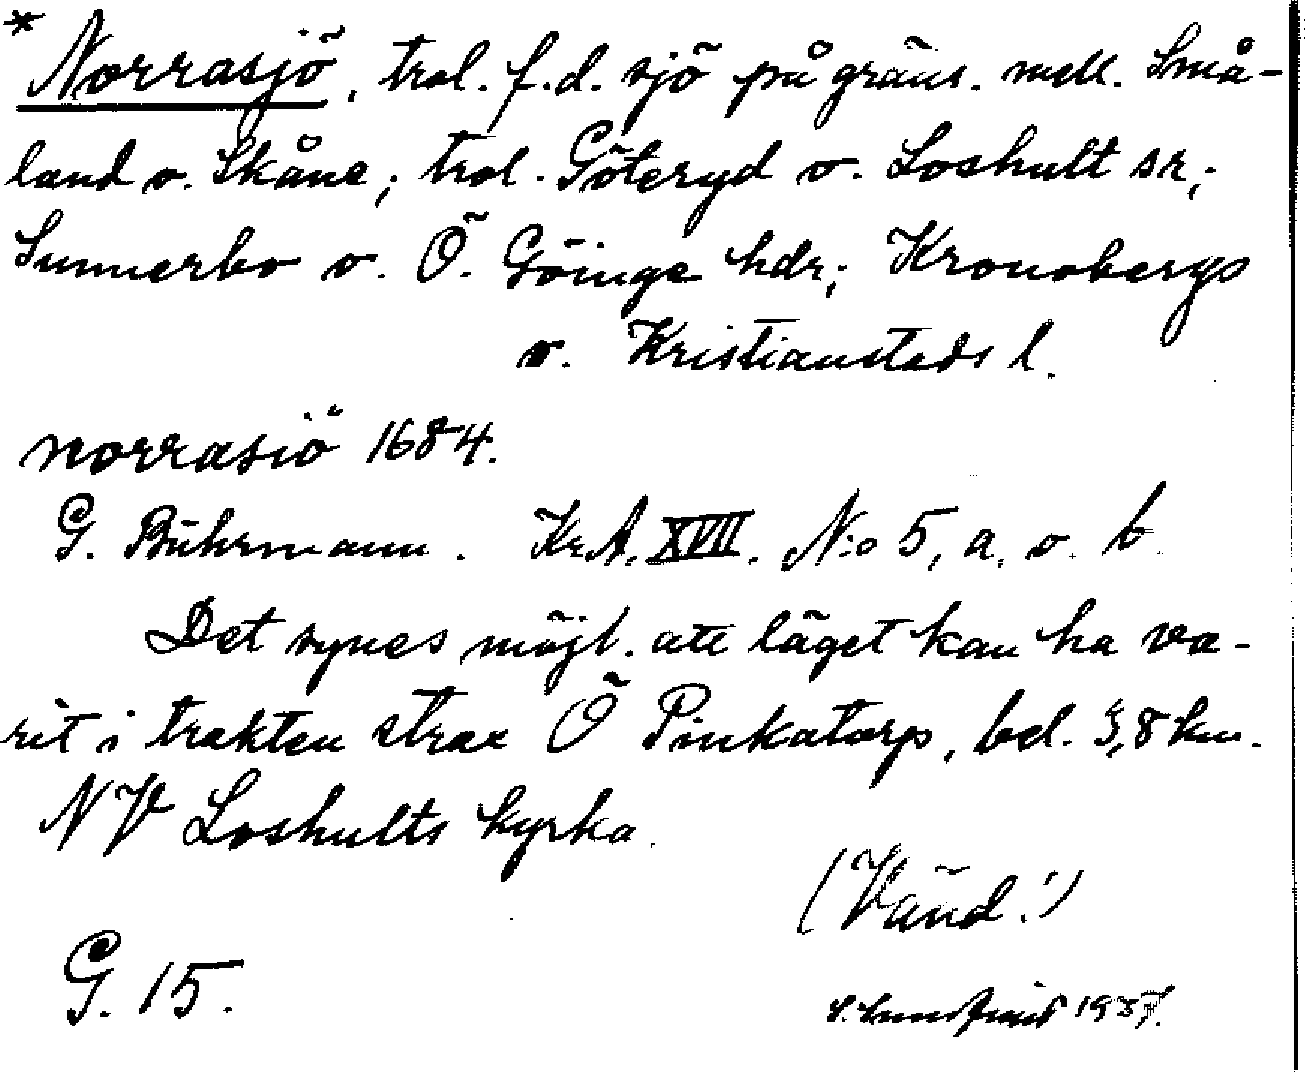 * Norrasjö, trol. f.d. sjö på gräns. mell. Små-
land o. Skåne; trol. Göteryd o. Loshult sr;
Sunnerbo o. Ö. Göinge hdr; Kronobergs
o. Kristianstads l.
norrasiö 1684.
G. Bührmann. KrA. XVII. N:o 5, a. o. b.
Det synes möjl. att läget kan ha va-
rit i trakten strax Ö Pinkatorp, bel. 3,8 km.
NV Loshults kyrka.
(Vänd!)
G. 15.